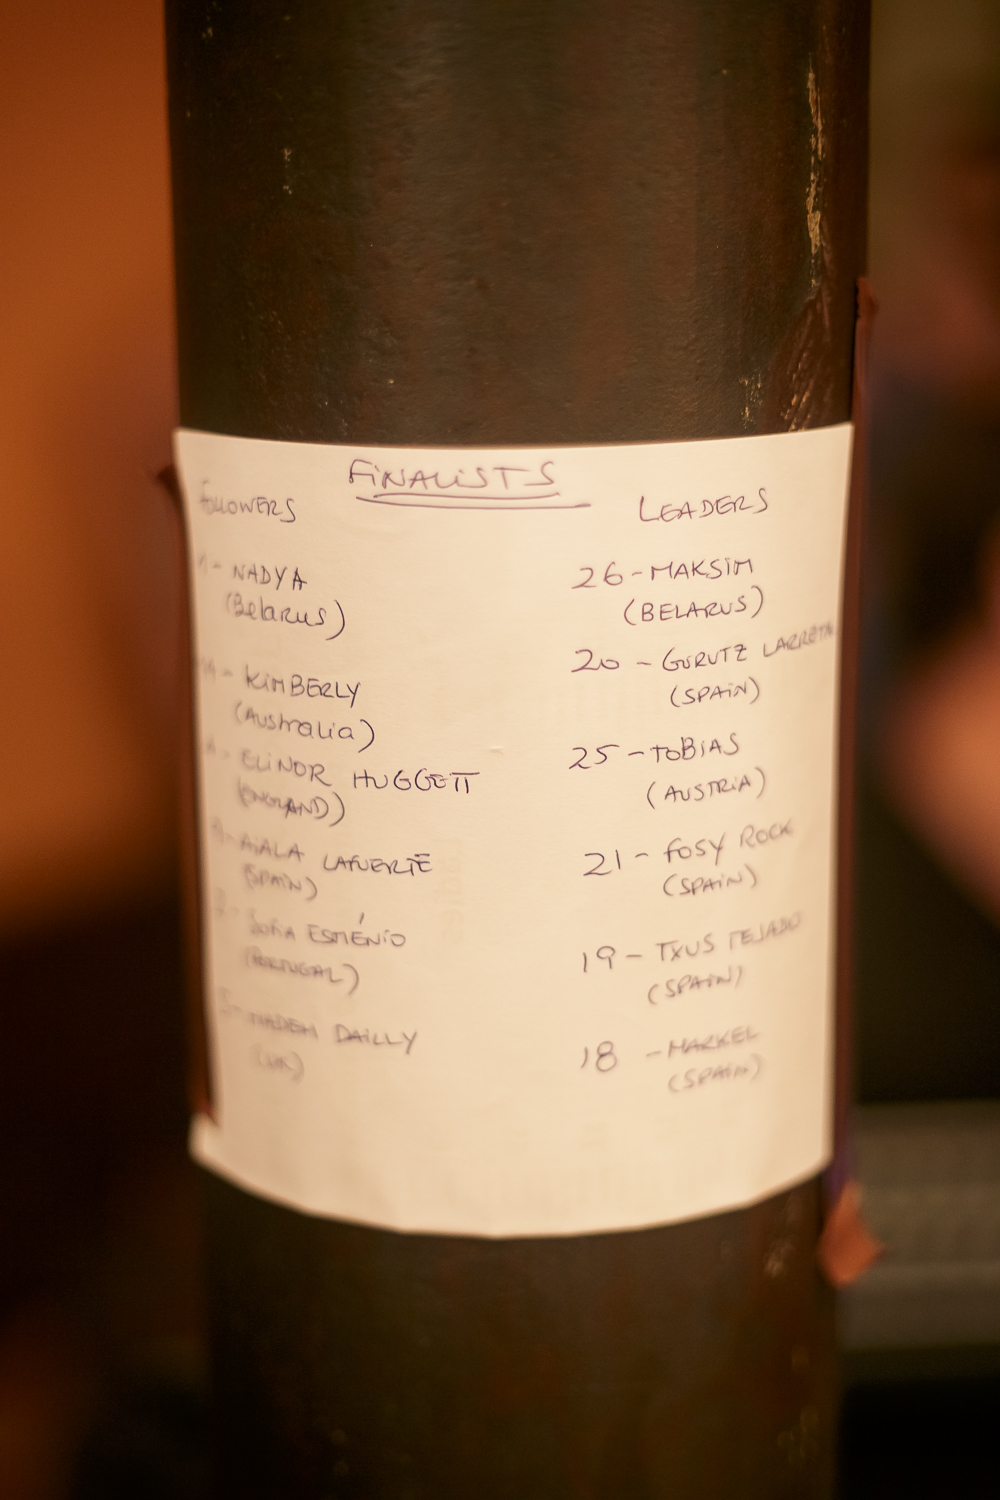 FiNALiSTS
FOLLOWERS
NADYA
(Belarus)
KiMBERLY
(Australia)
ELiNOR HUGGETT
(ENGLAND)
AiALA LAFUERTE
(SPAiN)
SOFiA ESMÉNiO
(PORTUGAL)
DAiLLY
(UK)
LEADERS
26 - MAKSiM
(BELARUS)
20 - GURUTZ LARRETA
(SPAiN)
25 - TOBIAS
(AUSTRiA)
21 - FOSY ROCK
(SPAiN)
19 - TXUS TEJADO
(SPAiN)
18 - MARKEL
(SPAiN)